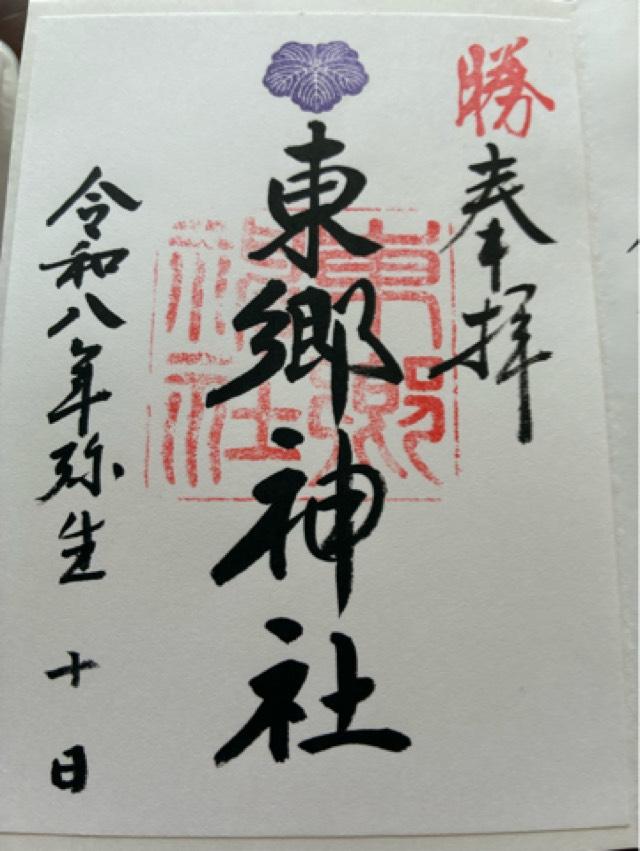 勝
奉拝
東郷神社
東郷神社
令和八年弥生 十日